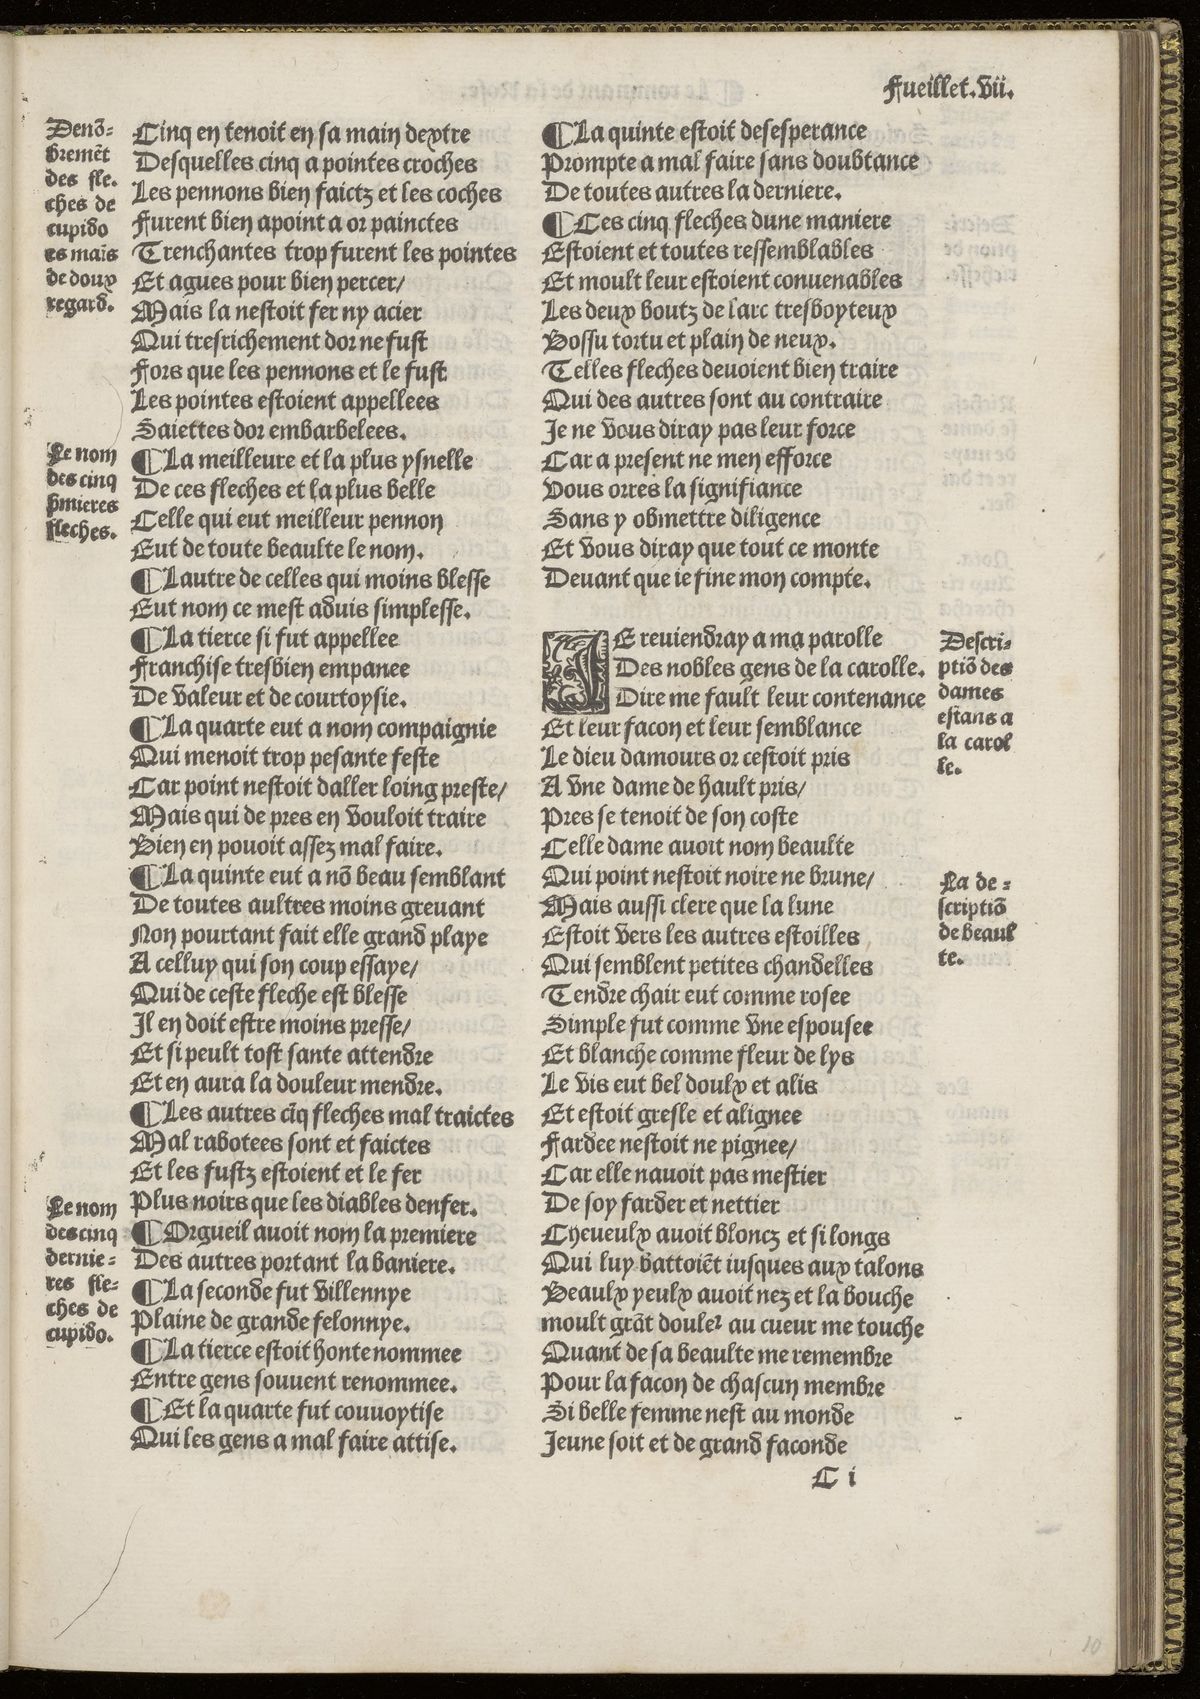 Fueillet.vii.
Denõ-
bremẽt
des fle.
ches de
cupido
es maĩs
de doux
regard.
Cinq en tenoit en sa main dextre
Desquelles cinq a pointes croches
Les pennons bien faictz et les coches
Furent bien apoint a or painctes
Trenchantes trop furent les pointes
Et agues pour bien percer/
Mais la nestoit fer ny acier
Qui tresrichement dor ne fust
Fors que les pennons et le fust
Les pointes estoient appellees
Saiettes dor embarbelees.
Le nom
des cinq
p̃mieres
fleches.
¶La meilleure et la plus ysnelle
De ces fleches et la plus belle
Celle qui eut meilleur pennon
Eut de toute beaulte le nom.
¶Lautre de celles qui moins blesse
Eut nom ce mest aduis simplesse.
¶La tierce si fut appellee
Franchise tresbien empanee
De valeur et de courtoysie.
¶La quarte eut a nom compaignie
Qui menoit trop pesante feste
Car point nestoit daller loing preste/
Mais qui de pres en vouloit traire
Bien en pouoit assez mal faire.
¶La quinte eut a nõ beau semblant
De toutes aultres moins greuant
Non pourtant fait elle grand playe
A celluy qui son coup essaye/
Qui de ceste fleche est blesse
Il en doit estre moins presse/
Et si peult tost sante attendre
Et en aura la douleur mendre.
¶Les autres cĩq fleches mal traictes
Mal rabotees sont et faictes
Et les fustz estoient et le fer
Plus noirs que les diables denfer.
Le nom
des cinq
dernie-
res fle-
ches de
cupido.
¶Orgueil auoit nom la premiere
Des autres portant la baniere.
¶La seconde fut villennye
Plaine de grande felonnye.
¶La tierce estoit honte nommee
Entre gens souuent renommee.
¶Et la quarte fut couuoytise
Qui les gens a mal faire attise.
¶La quinte estoit desesperance
Prompte a mal faire sans doubtance
De toutes autres la derniere.
¶Ces cinq fleches dune maniere
Estoient et toutes ressemblables
Et moult leur estoient conuenables
Les deux boutz de larc tresboyteux
Bossu tortu et plain de neux.
Telles fleches deuoient bien traire
Qui des autres sont au contraire
Je ne vous diray pas leur force
Car a present ne men efforce
Vous orres la signifiance
Sans y obmettre diligence
Et vous diray que tout ce monte
Deuant que ie fine mon compte.
Descri-
ptiõ des
dames
estans a
la carol
le.
JE reuiendray a ma parolle
Des nobles gens de la carolle.
Dire me fault leur contenance
Et leur facon et leur semblance
Le dieu damours or cestoit pris
A vne dame de hault pris/
Pres se tenoit de son coste
Celle dame auoit nom beaulte
Qui point nestoit noire ne brune/
Mais aussi clere que la lune
Estoit vers les autres estoilles
Qui semblent petites chandelles
La de-
scriptiõ
de beaul
te.
Tendre chair eut comme rosee
Simple fut comme vne espousee
Et blanche comme fleur de lys
Le vis eut bel doulx et alis
Et estoit gresle et alignee
Fardee nestoit ne pignee/
Car elle nauoit pas mestier
De soy farder et nettier
Cheueulx auoit bloncz et si longs
Qui luy battoiẽt iusques aux talons
Beaulx yeulx auoit nez et la bouche
moult grãt douleꝛ au cueur me touche
Quant de sa beaulte me remembre
Pour la facon de chascun membre
Si belle femme nest au monde
Jeune soit et de grand faconde
C i
10